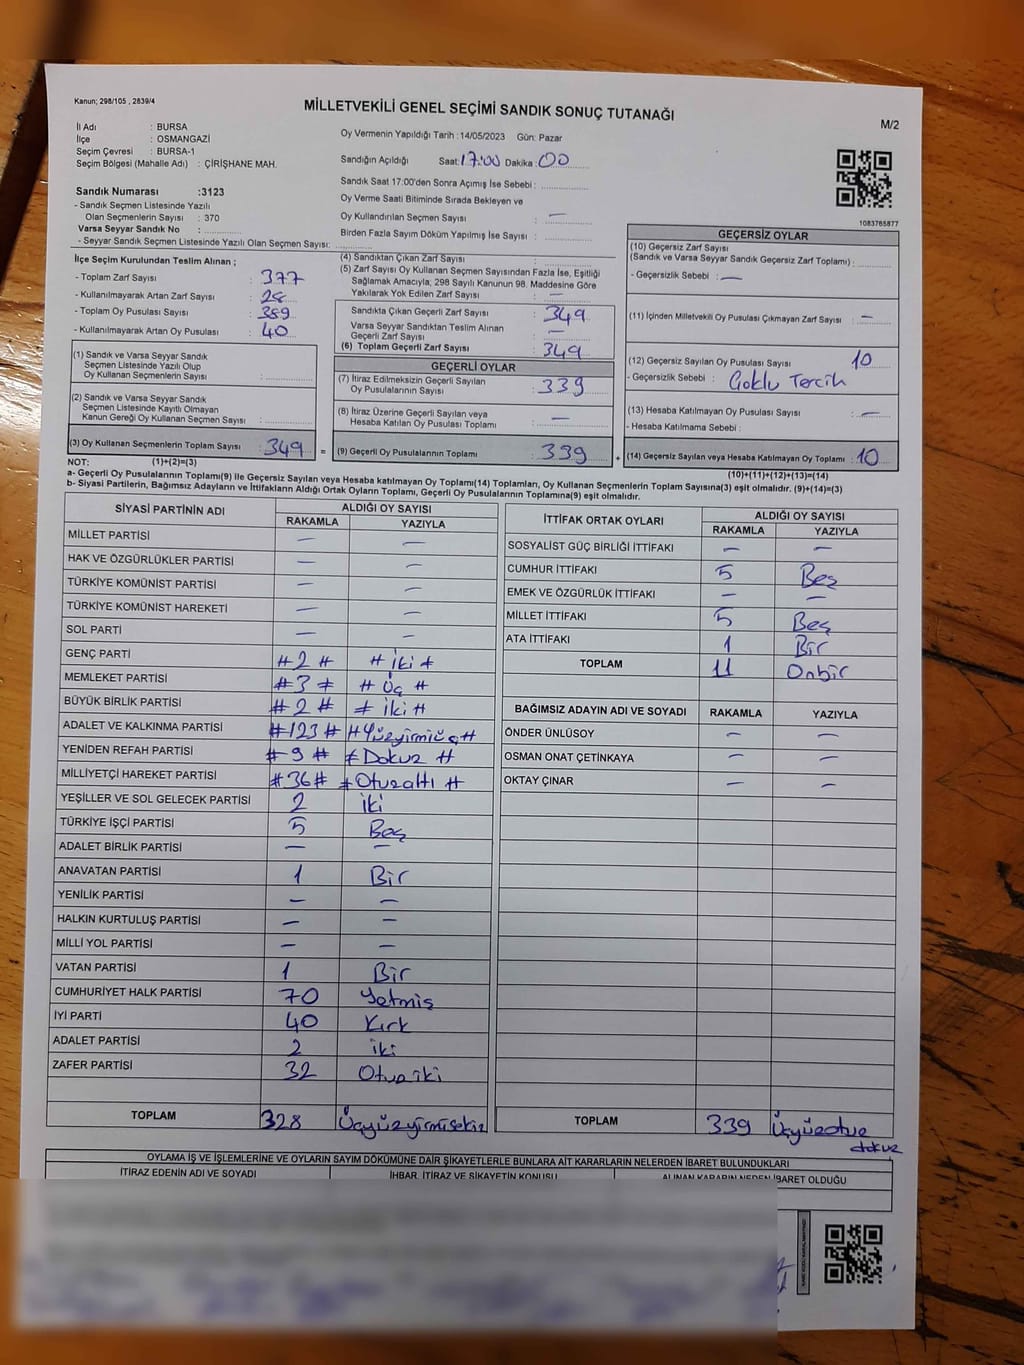 Kanun; 298/105 , 2839/4
MİLLETVEKİLİ GENEL SEÇİMİ SANDIK SONUÇ TUTANAĞI
M/2
İl Adı : BURSA
İlçe : OSMANGAZİ
Seçim Çevresi : BURSA-1
Seçim Bölgesi (Mahalle Adı) : ÇİRİŞHANE MAH.
Sandık Numarası :3123
- Sandık Seçmen Listesinde Yazılı
Olan Seçmenlerin Sayısı : 370
Varsa Seyyar Sandık No :
- Seyyar Sandık Seçmen Listesinde Yazılı Olan Seçmen Sayısı:
Oy Vermenin Yapıldığı Tarih : 14/05/2023 Gün: Pazar
Sandığın Açıldığı Saat: 17:00 Dakika : 00
Sandık Saat 17:00'den Sonra Açımış İse Sebebi :
Oy Verme Saati Bitiminde Sırada Bekleyen ve
Oy Kullandırılan Seçmen Sayısı : —
Birden Fazla Sayım Döküm Yapılmış İse Sayısı :
1083765877
İlçe Seçim Kurulundan Teslim Alınan ;
- Toplam Zarf Sayısı : 377
- Kullanılmayarak Artan Zarf Sayısı : 28
- Toplam Oy Pusulası Sayısı : 389
- Kullanılmayarak Artan Oy Pusulası : 40
(1) Sandık ve Varsa Seyyar Sandık
Seçmen Listesinde Yazılı Olup
Oy Kullanan Seçmenlerin Sayısı :
(2) Sandık ve Varsa Seyyar Sandık
Seçmen Listesinde Kayıtlı Olmayan
Kanun Gereği Oy Kullanan Seçmen Sayısı :
(3) Oy Kullanan Seçmenlerin Toplam Sayısı : 349 =
(4) Sandıktan Çıkan Zarf Sayısı :
(5) Zarf Sayısı Oy Kullanan Seçmen Sayısından Fazla İse, Eşitliği
Sağlamak Amacıyla; 298 Sayılı Kanunun 98. Maddesine Göre
Yakılarak Yok Edilen Zarf Sayısı : —
Sandıkta Çıkan Geçerli Zarf Sayısı : 349
Varsa Seyyar Sandıktan Teslim Alınan
Geçerli Zarf Sayısı : —
(6) Toplam Geçerli Zarf Sayısı : 349
GEÇERLİ OYLAR
(7) İtiraz Edilmeksizin Geçerli Sayılan
Oy Pusulalarının Sayısı : 339
(8) İtiraz Üzerine Geçerli Sayılan veya
Hesaba Katılan Oy Pusulası Toplamı : —
(9) Geçerli Oy Pusulalarının Toplamı : 339 +
GEÇERSİZ OYLAR
(10) Geçersiz Zarf Sayısı
(Sandık ve Varsa Seyyar Sandık Geçersiz Zarf Toplamı) :
- Geçersizlik Sebebi : —
(11) İçinden Milletvekili Oy Pusulası Çıkmayan Zarf Sayısı : —
(12) Geçersiz Sayılan Oy Pusulası Sayısı : 10
- Geçersizlik Sebebi : Çoklu Tercih
(13) Hesaba Katılmayan Oy Pusulası Sayısı : —
- Hesaba Katılmama Sebebi :
(14) Geçersiz Sayılan veya Hesaba Katılmayan Oy Toplamı : 10
NOT: (1)+(2)=(3) (10)+(11)+(12)+(13)=(14)
a- Geçerli Oy Pusulalarının Toplamı(9) ile Geçersiz Sayılan veya Hesaba Katılmayan Oy Toplamı(14) Toplamları, Oy Kullanan Seçmenlerin Toplam Sayısına(3) eşit olmalıdır. (9)+(14)=(3)
b- Siyasi Partilerin, Bağımsız Adayların ve İttifakların Aldığı Ortak Oyların Toplamı, Geçerli Oy Pusulalarının Toplamına(9) eşit olmalıdır.
SİYASİ PARTİNİN ADI ALDIĞI OY SAYISI
RAKAMLA YAZIYLA
MİLLET PARTİSİ — —
HAK VE ÖZGÜRLÜKLER PARTİSİ — —
TÜRKİYE KOMÜNİST PARTİSİ — —
TÜRKİYE KOMÜNİST HAREKETİ — —
SOL PARTİ — —
GENÇ PARTİ #2# #İki#
MEMLEKET PARTİSİ #3# #Üç#
BÜYÜK BİRLİK PARTİSİ #2# #İki#
ADALET VE KALKINMA PARTİSİ #123# #Yüzyirmiüç#
YENİDEN REFAH PARTİSİ #9# #Dokuz#
MİLLİYETÇİ HAREKET PARTİSİ #36# #Otuzaltı#
YEŞİLLER VE SOL GELECEK PARTİSİ 2 İki
TÜRKİYE İŞÇİ PARTİSİ 5 Beş
ADALET BİRLİK PARTİSİ — —
ANAVATAN PARTİSİ 1 Bir
YENİLİK PARTİSİ — —
HALKIN KURTULUŞ PARTİSİ — —
MİLLİ YOL PARTİSİ — —
VATAN PARTİSİ 1 Bir
CUMHURİYET HALK PARTİSİ 70 Yetmiş
İYİ PARTİ 40 Kırk
ADALET PARTİSİ 2 iki
ZAFER PARTİSİ 32 Otuziki
TOPLAM 328 Üçyüzyirmisekiz
İTTİFAK ORTAK OYLARI ALDIĞI OY SAYISI
RAKAMLA YAZIYLA
SOSYALİST GÜÇ BİRLİĞİ İTTİFAKI — —
CUMHUR İTTİFAKI 5 Beş
EMEK VE ÖZGÜRLÜK İTTİFAKI — —
MİLLET İTTİFAKI 5 Beş
ATA İTTİFAKI 1 Bir
TOPLAM 11 Onbir
BAĞIMSIZ ADAYIN ADI VE SOYADI RAKAMLA YAZIYLA
ÖNDER ÜNLÜSOY — —
OSMAN ONAT ÇETİNKAYA — —
OKTAY ÇINAR — —
TOPLAM 339 Üçyüzotuz
dokuz
OYLAMA İŞ VE İŞLEMLERİNE VE OYLARIN SAYIM DÖKÜMÜNE DAİR ŞİKAYETLERLE BUNLARA AİT KARARLARIN NELERDEN İBARET BULUNDUKLARI
İTİRAZ EDENİN ADI VE SOYADI İHBAR, İTİRAZ VE ŞİKAYETİN KONUSU ALINAN KARARIN NEDEN İBARET OLDUĞU